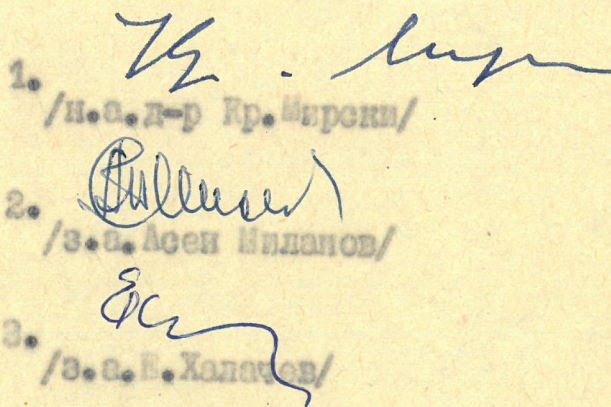 1. Кр. Мирски
/н.а.д-р Кр.Мирски/
2.
/з.а.Асен Миланов/
3.
/з.а.Е.Халачев/